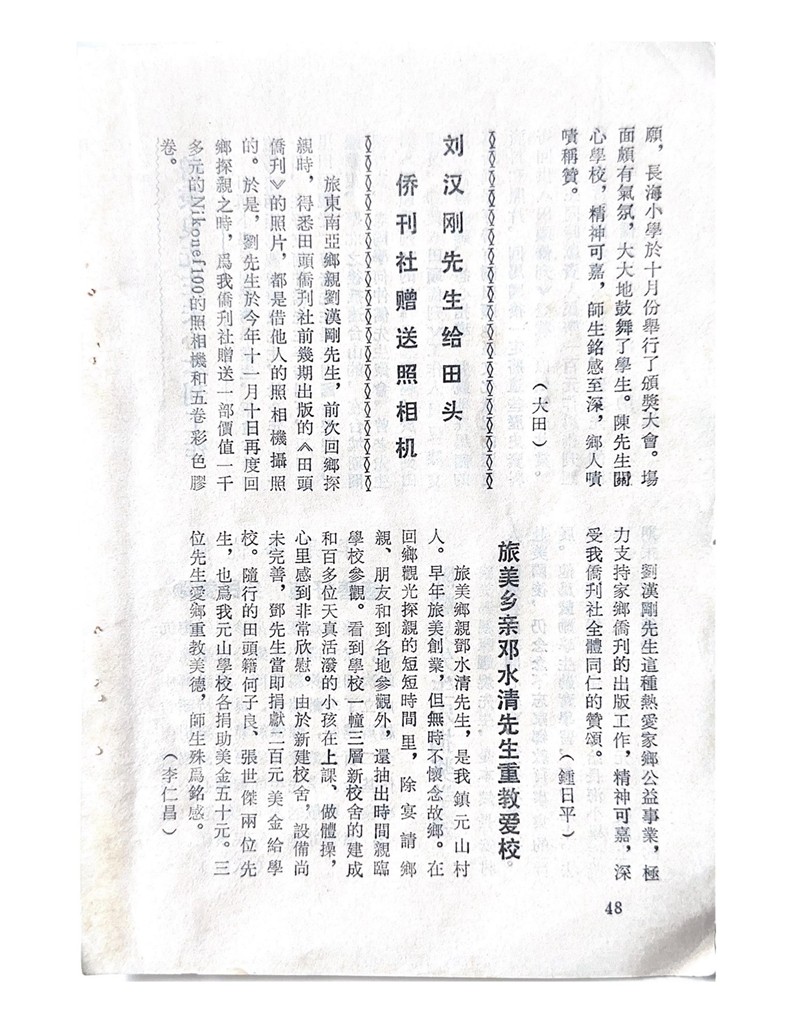 願，長海小學於十月份舉行了頒獎大會。塲
面頗有氣氛，大大地鼓舞了學生。陳先生關
心學校，精神可嘉，師生銘感至深，鄉人嘖
嘖稱贊。
（大田）
刘汉刚先生给田头
侨刊社赠送照相机
旅東南亞鄉親劉漢剛先生，前次回鄉探
親時，得悉田頭僑刊社前幾期出版的《田頭
僑刊》的照片，都是借他人的照相機攝照
的。於是，劉先生於今年十一月十日再度回
鄉探親之時，爲我僑刊社贈送一部價值一千
多元的Nikonef100的照相機和五卷彩色膠
卷。
劉漢剛先生這種熱愛家鄉公益事業，極
力支持家鄉僑刊的出版工作，精神可嘉，深
受我僑刊社全體同仁的贊頌。
（鍾日平）
旅美乡亲邓水清先生重教爱校
旅美鄉親鄧水清先生，是我鎮元山村
人。早年旅美創業，但無時不懷念故鄉。在
回鄉觀光探親的短短時間里，除宴請鄉
親、朋友和到各地參觀外，還抽出時間親臨
學校參觀。看到學校一幢三層新校舍的建成
和百多位天真活潑的小孩在上課、做體操，
心里感到非常欣慰。由於新建校舍，設備尚
未完善，鄧先生當即捐獻二百元美金給學
校。隨行的田頭籍何子良、張世傑兩位先
生，也爲我元山學校各捐助美金五十元。三
位先生愛鄉重教美德，師生殊爲銘感。
（李仁昌）
48